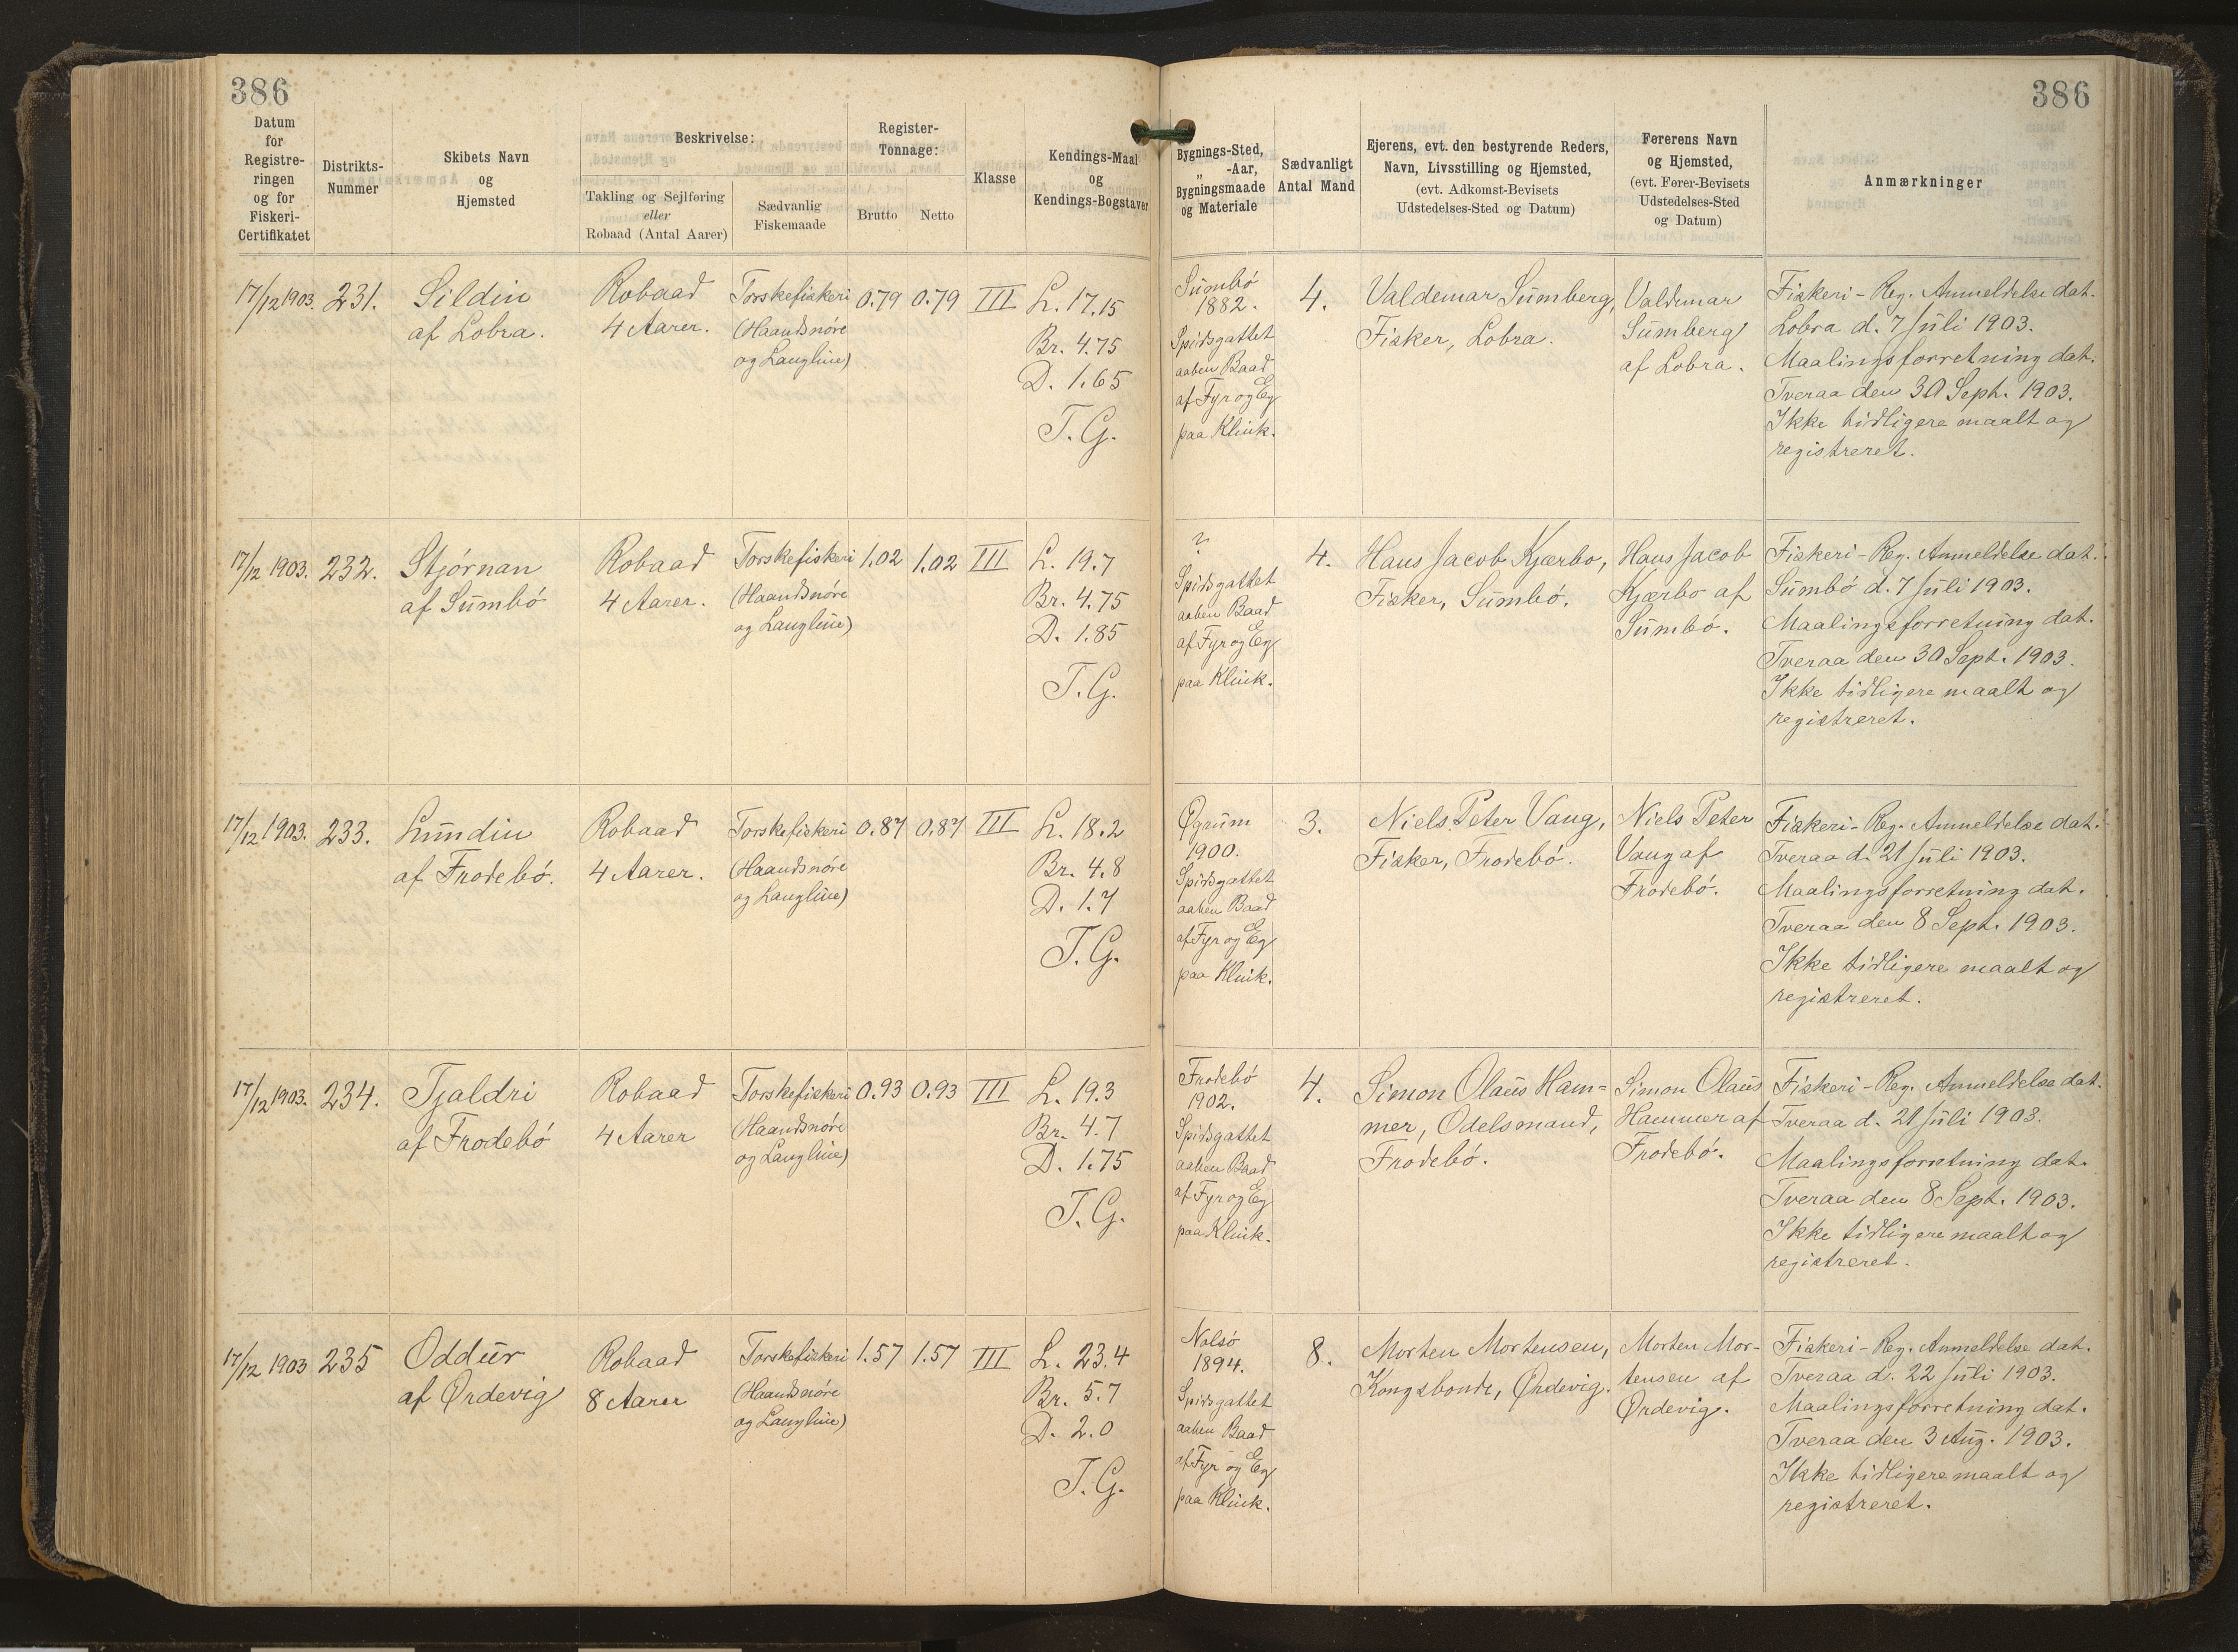 386
386
Datum
for
Registre-
ringen
og for
Fiskeri-
Certifikatet
Distrikts-
Nummer
Skibets Navn
og
Hjemsted
Beskrivelse:
Takling og Sejlføring
eller
Robaad (Antal Aarer)
Sædvanlig
Fiskemaade
Register-
Tonnage:
Brutto
Netto
Klasse
Kendings-Maal
og
Kendings-Bogstaver
Bygnings-Sted,
„ -Aar,
Bygningsmaade
og Materiale
Sædvanligt
Antal Mand
Ejerens, evt. den bestyrende Reders,
Navn, Livsstilling og Hjemsted,
(evt. Adkomst-Bevisets
Udstedelses-Sted og Datum)
Førerens Navn
og Hjemsted,
(evt. Fører-Bevisets
Udstedelses-Sted
og Datum)
Anmærkninger
17/12 1903.
231.
Sildin
af Lobra.
Robaad
4 Aarer.
Torskefiskeri
(Haandsnöre
og Langline)
0.79
0.79
III
L. 17.15
Br. 4.75
D. 1.65
T. G.
Sumbö
1882.
Spidsgattet
aaben Baad
af Fyr og Eg
paa Klink.
4.
Valdemar Sumberg,
Fisker, Lobra.
Valdemar
Sumberg
af Lobra.
Fiskeri-Reg. Anmeldelse dat.
Lobra d. 7 Juli 1903.
Maalingsforretning dat.
Tveraa den 30 Sept. 1903.
Ikke tidligere maalt og
registreret.
17/12 1903.
232.
Stjörnan
af Sumbö
Robaad
4 Aarer.
Torskefiskeri
(Haandsnöre
og Langline)
1.02
1.02
III
L. 19.7
Br. 4.75
D. 1.85
T. G.
?
Spidsgattet
aaben Baad
af Fyr og Eg
paa Klink.
4.
Hans Jacob Kjærbo,
Fisker, Sumbö.
Hans Jacob
Kjærbo af
Sumbö.
Fiskeri-Reg. Anmeldelse dat.
Sumbö d. 7 Juli 1903.
Maalingsforretning dat.
Tveraa den 30 Sept. 1903.
Ikke tidligere maalt og
registreret.
17/12 1903.
233.
Lundin
af Frodebö.
Robaad
4 Aarer.
Torskefiskeri
(Haandsnöre
og Langline)
0.87
0.87
III
L. 18.2
Br. 4.8
D. 1.7
T. G.
Øgrum
1900.
Spidsgattet
aaben Baad
af Fyr og Eg
paa Klink.
3.
Niels Peter Vang,
Fisker, Frodebö.
Niels Peter
Vang af
Frodebö.
Fiskeri-Reg. Anmeldelse dat.
Tveraa d. 21 Juli 1903.
Maalingsforretning dat.
Tveraa den 8 Sept. 1903.
Ikke tidligere maalt og
registreret.
17/12 1903.
234.
Tjaldri
af Frodebö
Robaad
4 Aarer
Torskefiskeri
(Haandsnöre
og Langline)
0.93
0.93
III
L. 19.3
Br. 4.7
D. 1.75
T. G.
Frodebö
1902.
Spidsgattet
aaben Baad
af Fyr og Eg
paa Klink.
4.
Simon Olaus Ham=
mer, Odelsmand,
Frodebö.
Simon Olaus
Hammer af
Frodebö.
Fiskeri-Reg. Anmeldelse dat.
Tveraa d. 21 Juli 1903.
Maalingsforretning dat.
Tveraa den 8 Sept. 1903.
Ikke tidligere maalt og
registreret.
17/12 1903
235
Oddur
af Ørdevig
Robaad
8 Aarer
Torskefiskeri
(Haandsnöre
og Langline)
1.57
1.57
III
L. 23.4
Br. 5.7
D. 2.0
T. G.
Nolsö
1894.
Spidsgattet
aaben Baad
af Fyr og Eg
paa Klink.
8.
Morten Mortensen,
Kongsbonde, Ørdevig.
Morten Mor-
tensen af
Ørdevig.
Fiskeri-Reg. Anmeldelse dat.
Tveraa d. 22 Juli 1903.
Maalingsforretning dat.
Tveraa den 3 Aug. 1903.
Ikke tidligere maalt og
registreret.